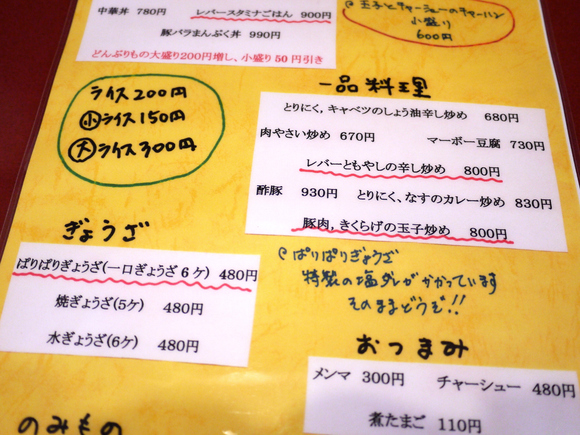 中華丼 780円
レバースタミナごはん 900円
豚バラまんぷく丼 990円
どんぶりもの大盛り200円増し、小盛り50円引き
玉子とチャーシューのチャーハン
小盛り
600円
ライス200円
小ライス150円
大ライス300円
一品料理
とりにく，キャベツのしょう油辛し炒め 680円
肉やさい炒め 670円 マーボー豆腐 730円
レバーともやしの辛し炒め 800円
酢豚 930円 とりにく、なすのカレー炒め 830円
豚肉，きくらげの玉子炒め 800円
ぎょうざ
ぱりぱりぎょうざ(一口ぎょうざ6ケ) 480円
焼ぎょうざ(5ケ) 480円
水ぎょうざ(6ケ) 480円
ぱりぱりぎょうざ
特製の塩ダレがかかっています
そのままどうぞ!!
おつまみ
メンマ 300円 チャーシュー 480円
煮たまご 110円
のみもの